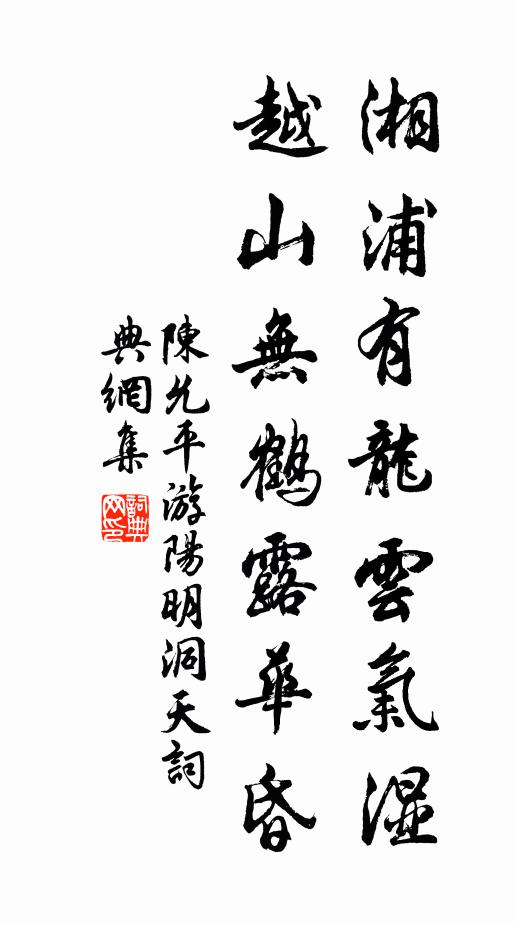 湘浦有龍雲氣湿
越山無鶴露華昏
陳允平游陽明洞天詞
典網集
詞典
网印